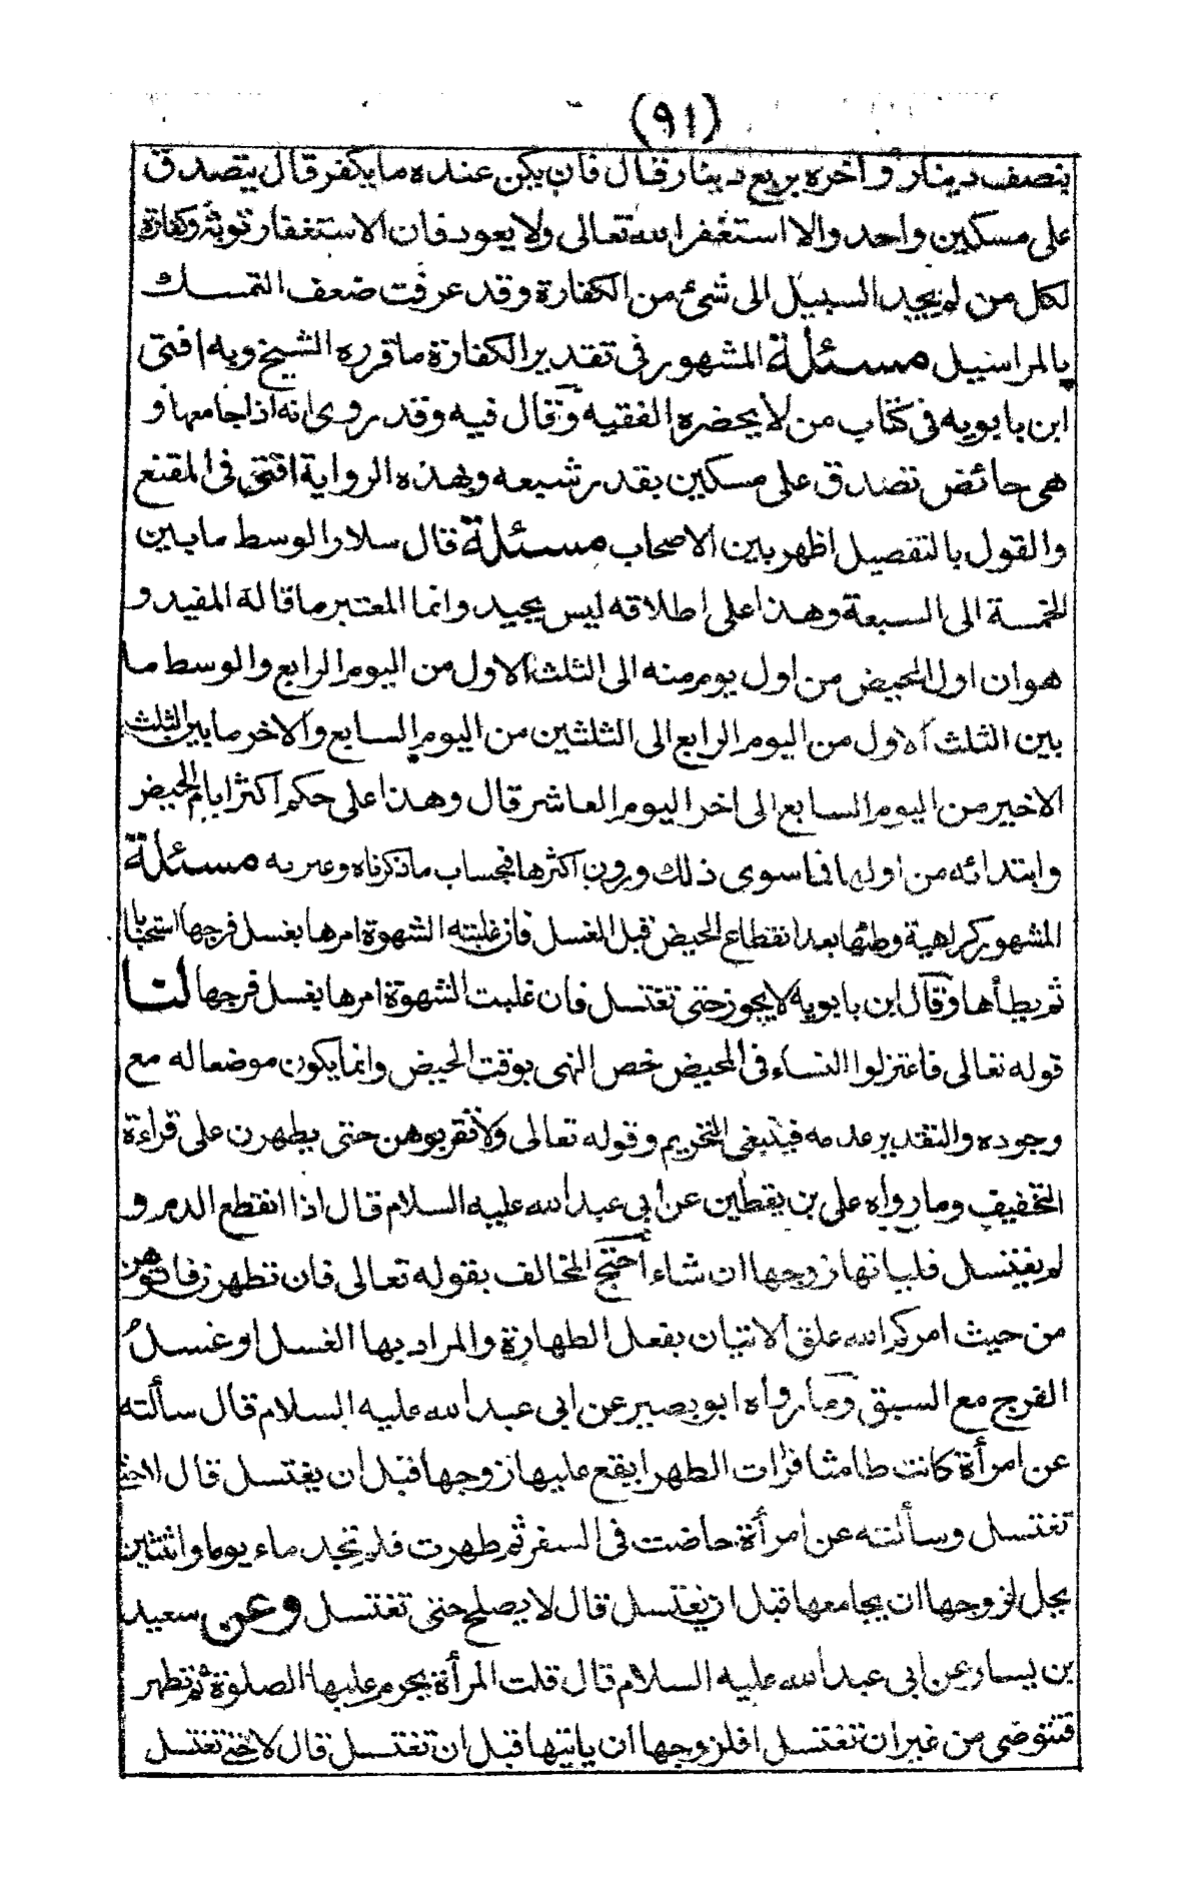 (٩١)
بنصف دينار و اخره بربع دينار قال فان يكن عنده ما يكفر قال يتصدق
على مسكين واحد والا استغفر الله تعالى ولا يعود فان الاستغفار توبة وكفارة
لكل من لم يجد السبيل الى شئ من الكفارة وقد عرفت ضعف التمسك
بالمراسيل مسئلة المشهور فى تقدير الكفارة ما قرره الشيخ وبه افتى
ابن بابويه فى كتاب من لا يحضره الفقيه وقال فيه وقد روى انه اذا جامعها و
هى حائض تصدق على مسكين بقدر شبعه وبهذه الرواية افتى فى المقنع
والقول بالتفصيل اظهر بين الاصحاب مسئلة قال سلار الوسط ما بين
الخمسة الى السبعة وهذا على اطلاقه ليس بجيد وانما المعتبر ما قاله المفيد و
هو ان اول الحيض من اول يوم منه الى الثلث الاول من اليوم الرابع والوسط ما
بين الثلث الاول من اليوم الرابع الى الثلثين من اليوم السابع والاخر ما بين الثلث
الاخير من اليوم السابع الى اخر اليوم العاشر قال وهذا على حكم اكثر ايام الحيض
وابتدائه من اولها فما سوى ذلك ودون اكثرها فبحساب ما ذكرناه وعبر به مسئلة
المشهور كراهية وطئها بعد انقطاع الحيض قبل الغسل فان غلبته الشهوة امرها بغسل فرجها استحبابا
ثم يطأها وقال ابن بابويه لا يجوز حتى تغتسل فان غلبت الشهوة امرها بغسل فرجها لنا
قوله تعالى فاعتزلوا النساء فى المحيض خص النهى بوقت الحيض وانما يكون موضعا له مع
وجوده والتقدير عدمه فينبغى التحريم وقوله تعالى ولا تقربوهن حتى يطهرن على قراءة
التخفيف وما رواه على بن يقطين عن ابى عبد الله عليه السلام قال اذا انقطع الدم و
لم يغتسل فلياتها زوجها ان شاء احتج المخالف بقوله تعالى فان تطهرن فاتوهن
من حيث امركم الله علق الاتيان بفعل الطهارة والمراد بها الغسل او غسل
الفرج مع السبق وما رواه ابو بصير عن ابى عبد الله عليه السلام قال سألته
عن امرأة كانت طامثا فرات الطهر ايقع عليها زوجها قبل ان يغتسل قال لا حتى
تغتسل وسألته عن امرأة حاضت فى السفر ثم طهرت فلم تجد ماء يوما واثنين
يحل لزوجها ان يجامعها قبل ان يغتسل قال لا يصلح حتى تغتسل وعن سعيد
بن يسار عن ابى عبد الله عليه السلام قال قلت المرأة يحرم عليها الصلوة ثم تطهر
فتتوضى من غير ان تغتسل افلزوجها ان ياتيها قبل ان تغتسل قال لا حتى تغتسل